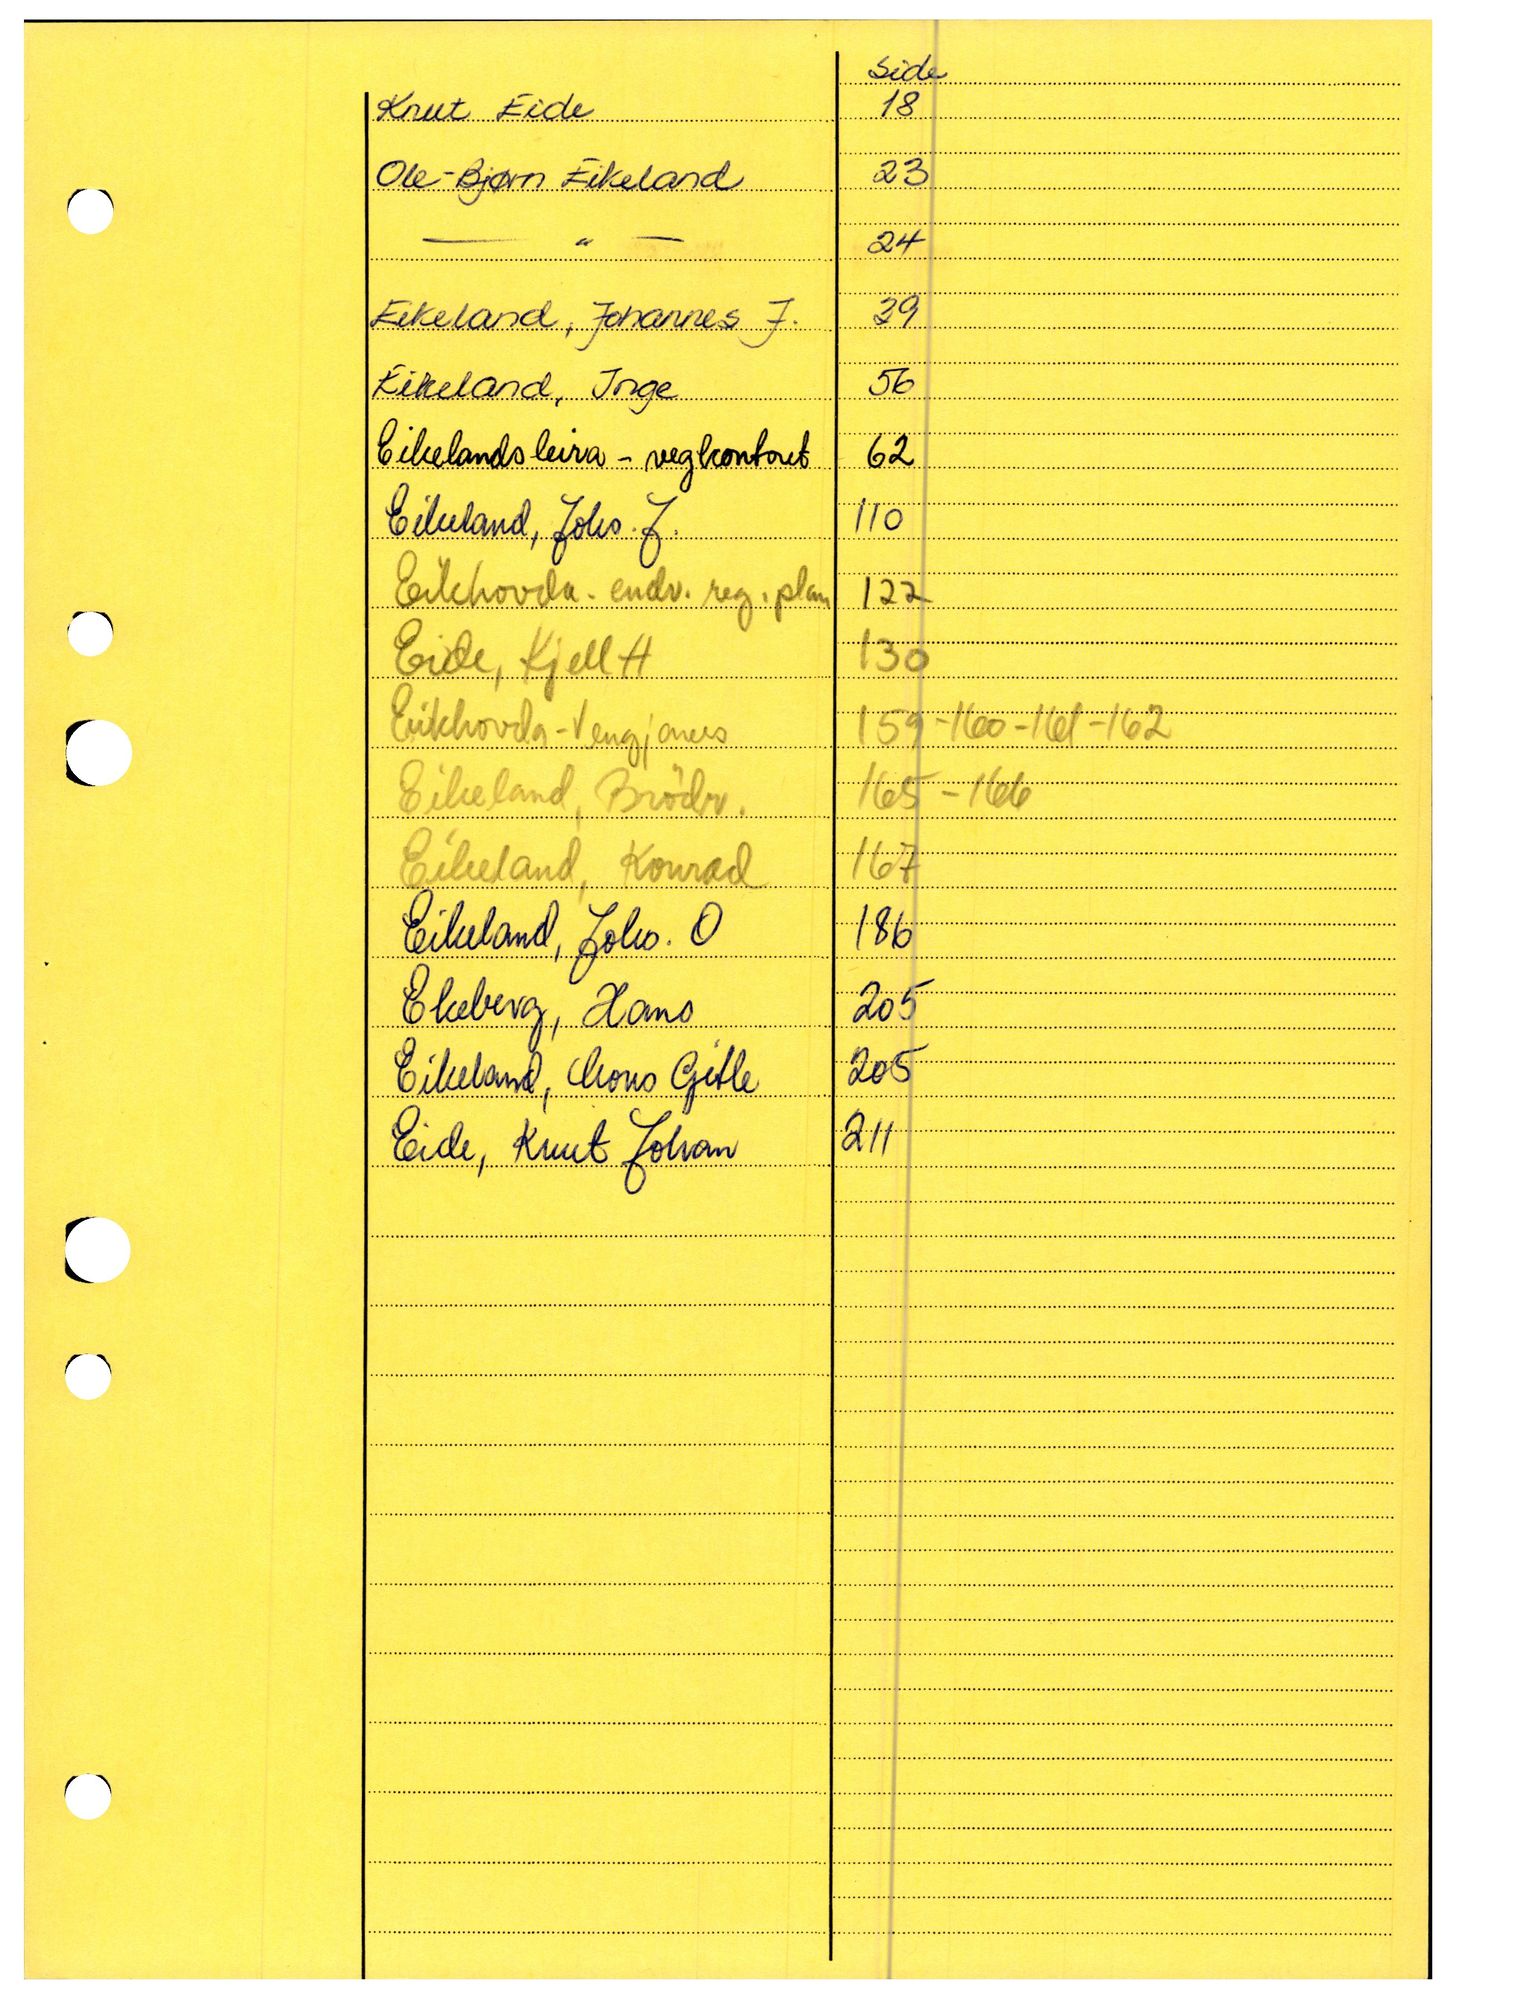 Side
Knut Eide 18
Ole-Bjørn Eikeland 23
— " — 24
Eikeland, Johannes J. 39
Eikeland, Inge 56
Eikelandsleira - vegkontort 62
Eikeland, Johs. J. 110
Eikhovda - endr. reg. plan 122
Eide, Kjell H 130
Eikhovda - 159-160-161-162
Eikeland, Brödr. 165-166
Eikeland, Konrad 167
Eikeland, Johs. O 186
Ekeberg, Hans 205
Eikeland, Mons Gitle 205
Eide, Knut Johan 211